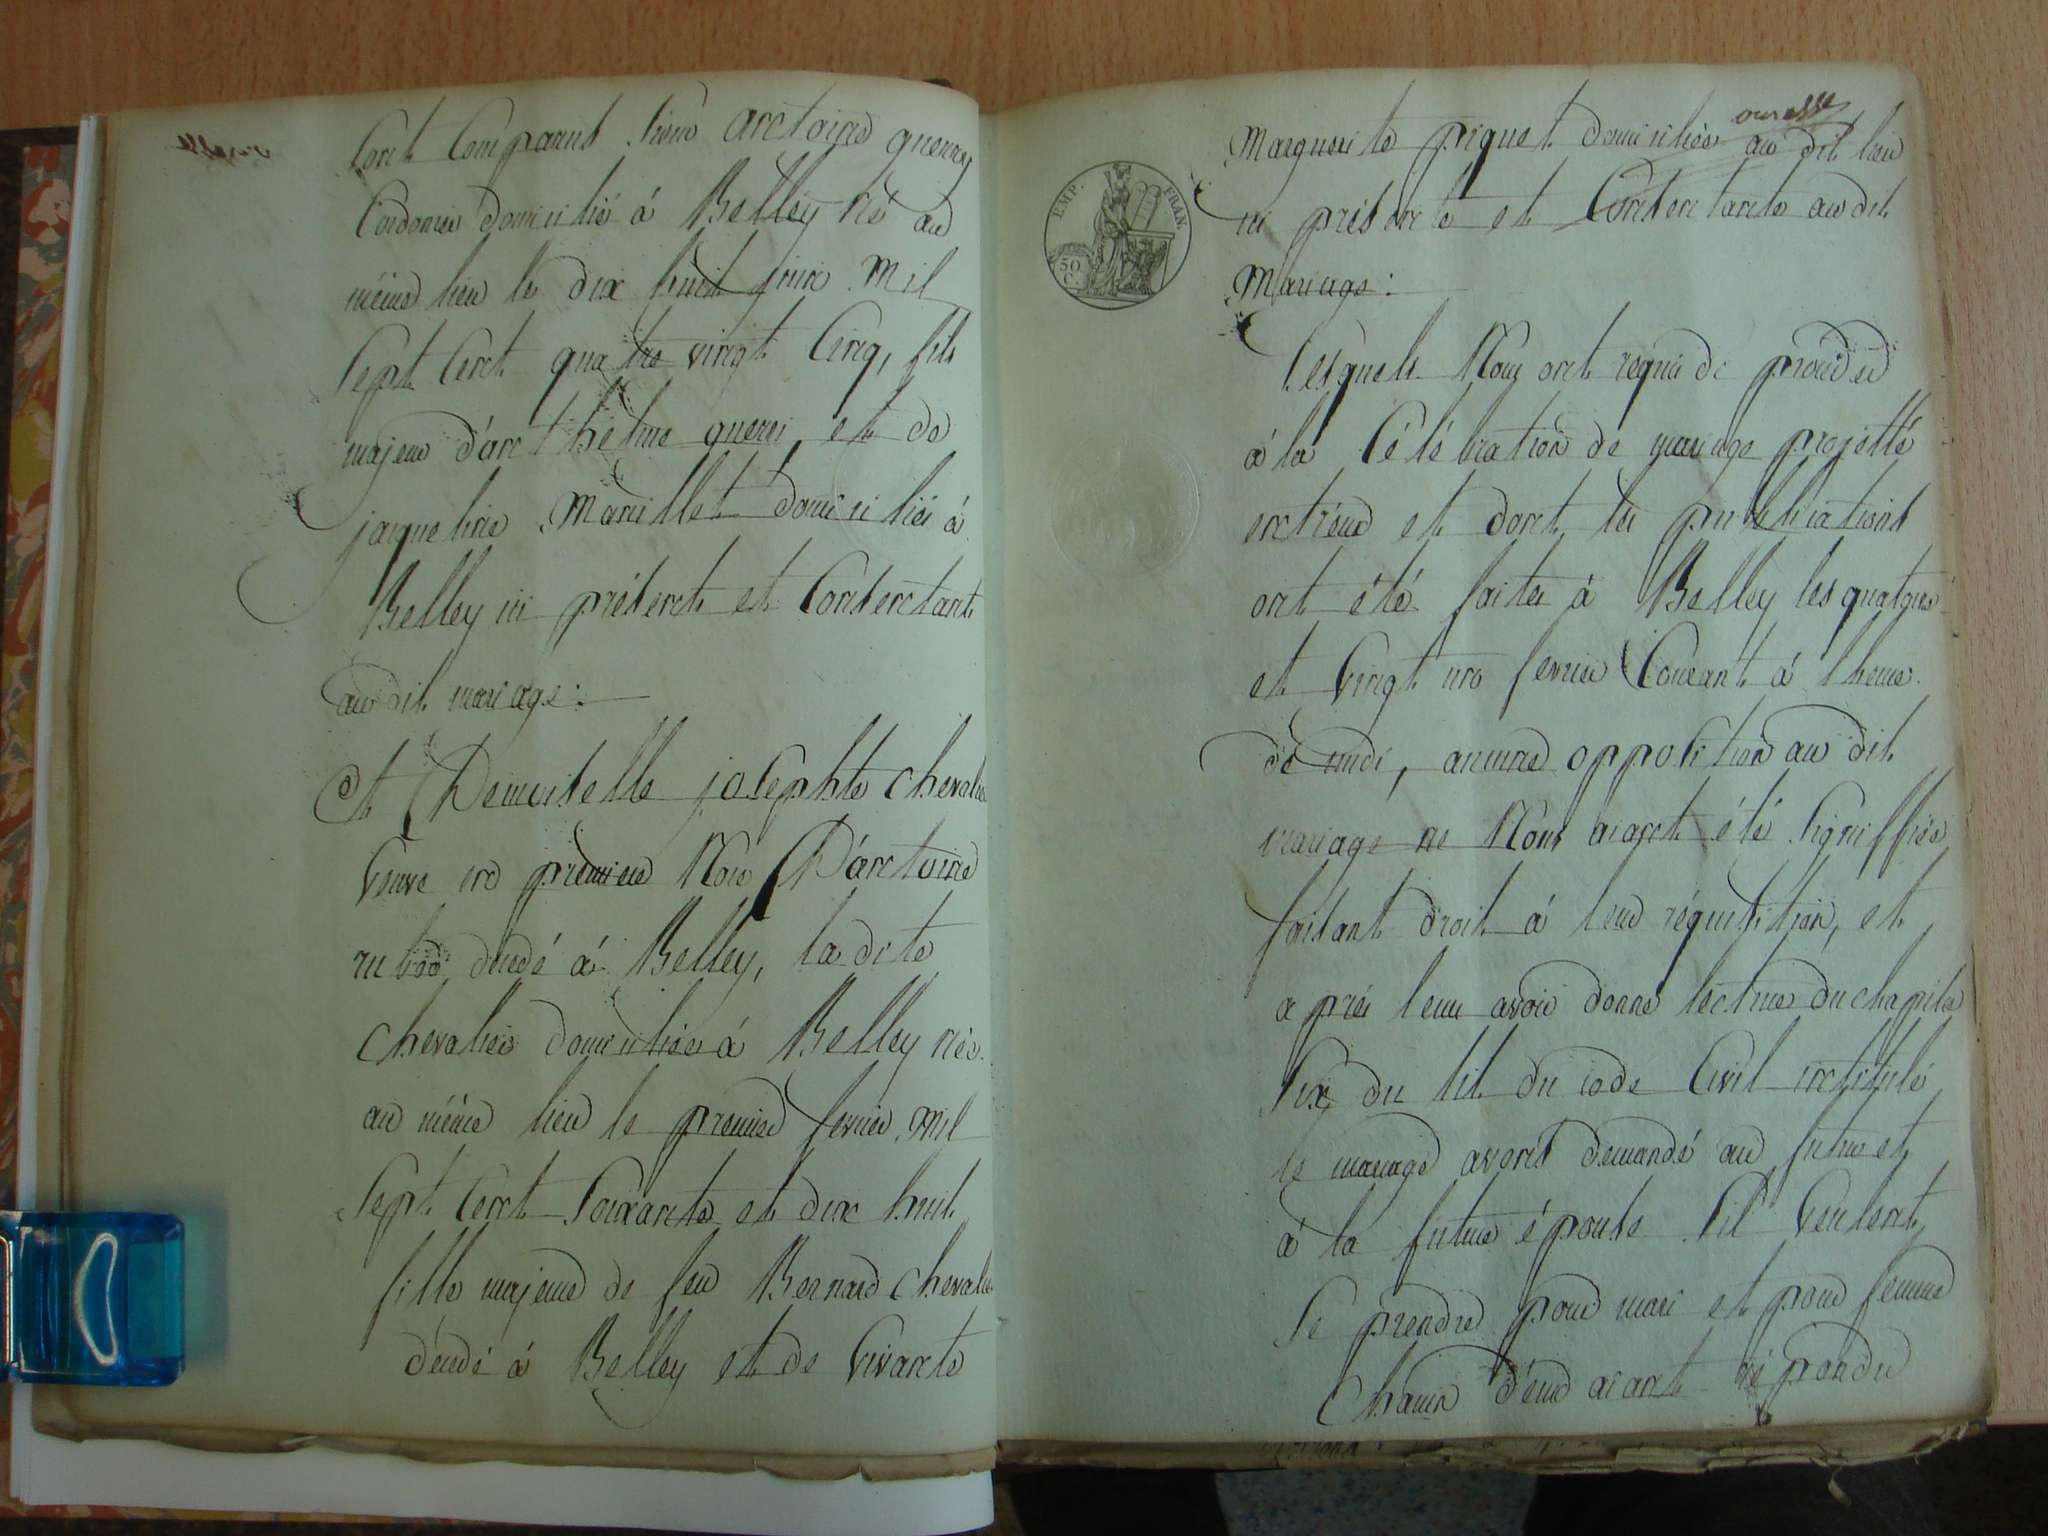 sont comparus sieur antoine guerrey
Cordonier domicilié á Belley né au
même lieu le dix huit juin Mil
sept cent quatre vingt Cinq, fils
majeur d'anthelme guerei et de
jacqueline Marillet domiciliés á
Belley ici présent et Consentant
audit mariage :
Et Demoiselle josephte chevalier
veuve en premiere Noce D'antoine
décédé á Belley, la dite
chevalier domiciliée á Belley née
au même lieu le premier fevrier Mil
sept cent soixante et dix huit
fille majeure de feu Bernard chevalier
décédé á Belley et de vivante
EMP. FRAN.
50 C.
Marguerite piquet domiciliée au dit lieu
ici présente et Consentante au dit
Mariage :
Lesquels Nous ont requis de procéder
á la Célébration de mariage projetté
entr'eux et dont les publications
ont été faites á Belley les quatorze
et vingt un fevrier Courant á l'heure
de midi, aucune opposition au dit
mariage ne Nous aiant été signiffiée
faisant droit á leur réquisition, et
aprés leur avoir donné lecture du chapitre
Six du tit. du code Civil intitulé
le mariage avons demandé au futur et
á la future épouse s'il veulent
se prendre pour mari et pour femme
Chacun d'eux aiant répondu